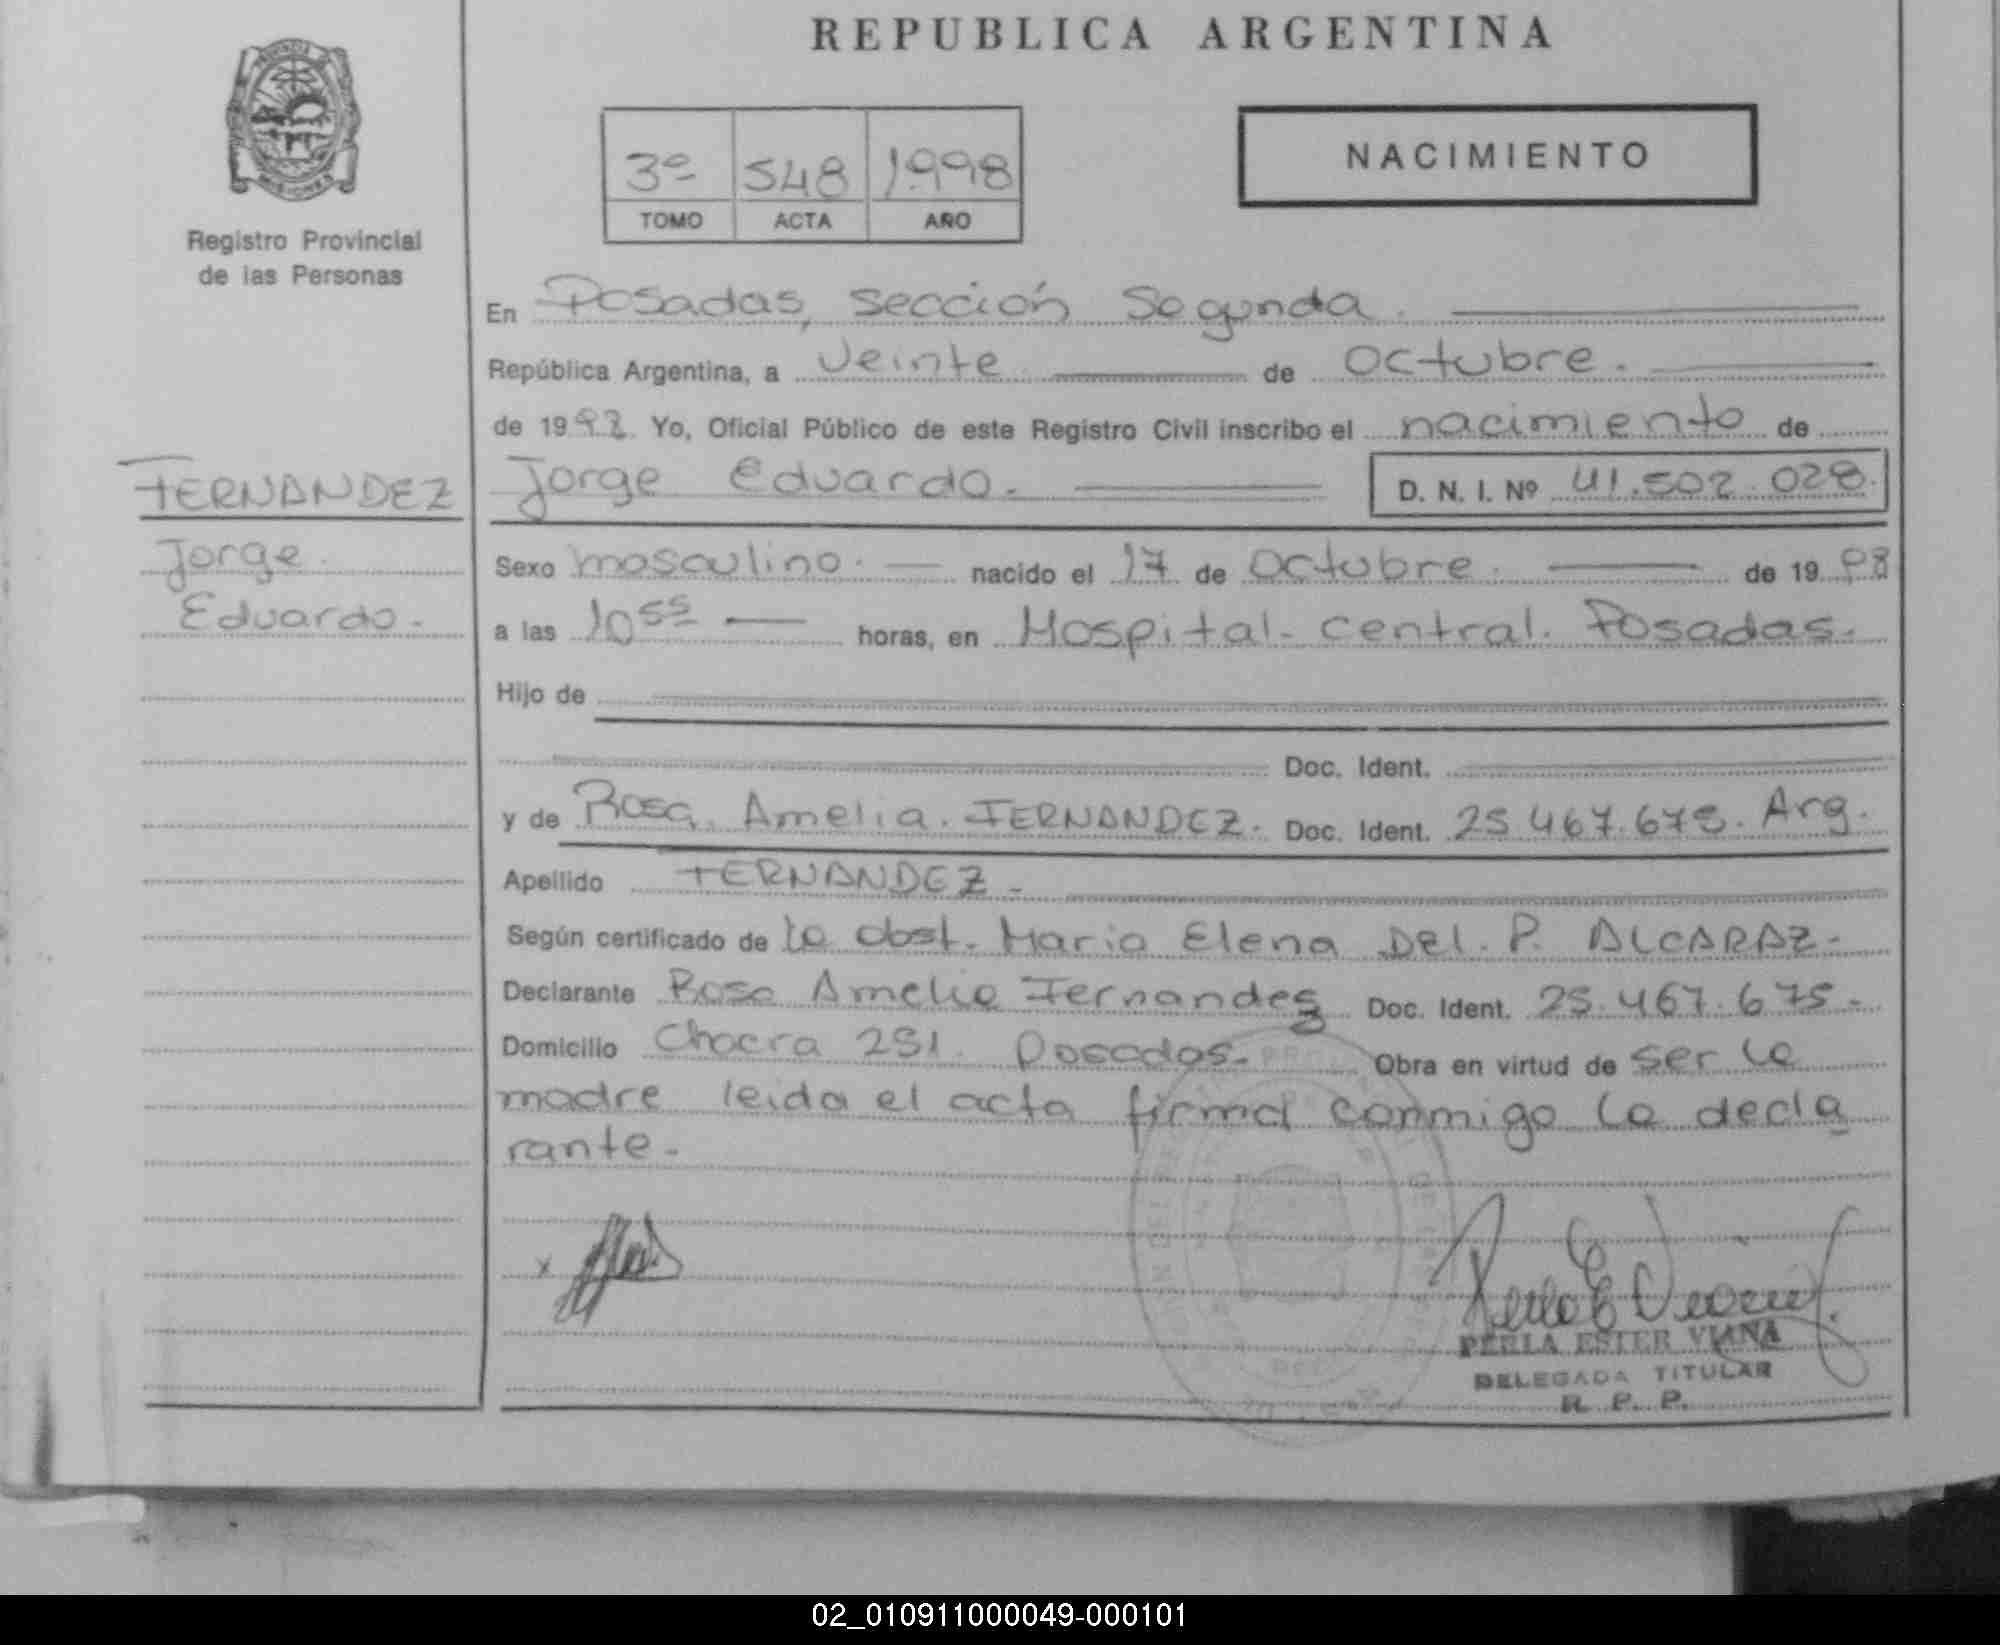 REPUBLICA ARGENTINA
3º 548 1998
TOMO ACTA AÑO
NACIMIENTO
Registro Provincial
de las Personas
En Posadas, sección Segunda.
República Argentina, a veinte de octubre.
de 1998 Yo, Oficial Público de este Registro Civil inscribo el nacimiento de
FERNANDEZ Jorge Eduardo. D. N. I. Nº 41.502.028.
Jorge Sexo masculino. nacido el 17 de octubre. de 1998
Eduardo. a las 10 55 horas, en Hospital central. Posadas.
Hijo de
Doc. Ident.
y de Rosa Amelia. FERNANDEZ. Doc. Ident. 25.467.675. Arg.
Apellido FERNANDEZ.
Según certificado de la obst. Maria Elena Del. P. ALCARAZ.
Declarante Rosa Amelia Fernandez Doc. Ident. 25.467.675.
Domicilio Chacra 251. Posadas. Obra en virtud de ser la
madre leida el acta firma conmigo la decla
rante.
x
PERLA ESTER VIANA
DELEGADA TITULAR
R. P. P.
02_010911000049-000101